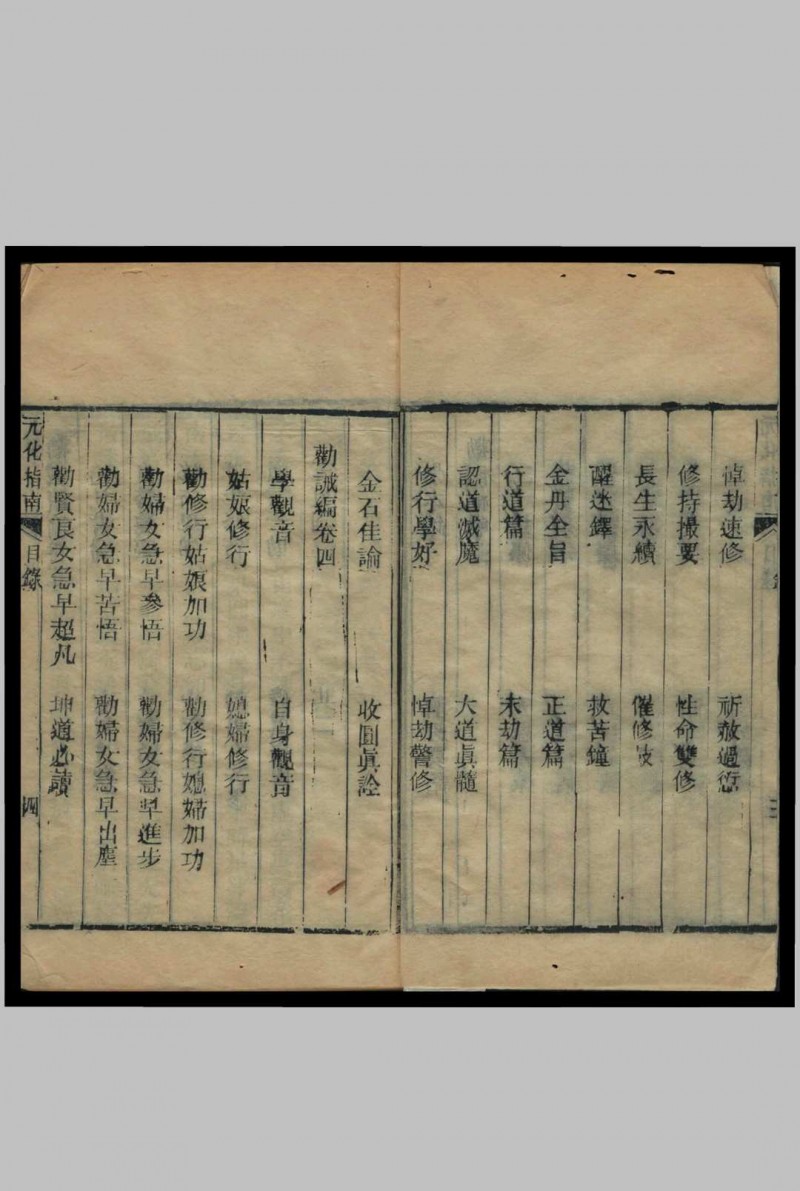 悼劫速修　祈赦過愆
修持撮要　性命雙修
長生永續　催修歌
醒迷鐸　救苦鐘
金丹全旨　正道篇
行道篇　末劫篇
認道滅魔　大道眞髓
修行學好　悼劫警修
金石佳論　收圓眞詮
勸誡編卷四
學觀音　自身觀音
姑娘修行　媳婦修行
勸修行姑娘加功　勸修行媳婦加功
勸婦女急早參悟　勸婦女急早進步
勸婦女急早苦悟　勸婦女急早出塵
勸賢良女急早超凡　坤道必讀
元化指南　目錄　四